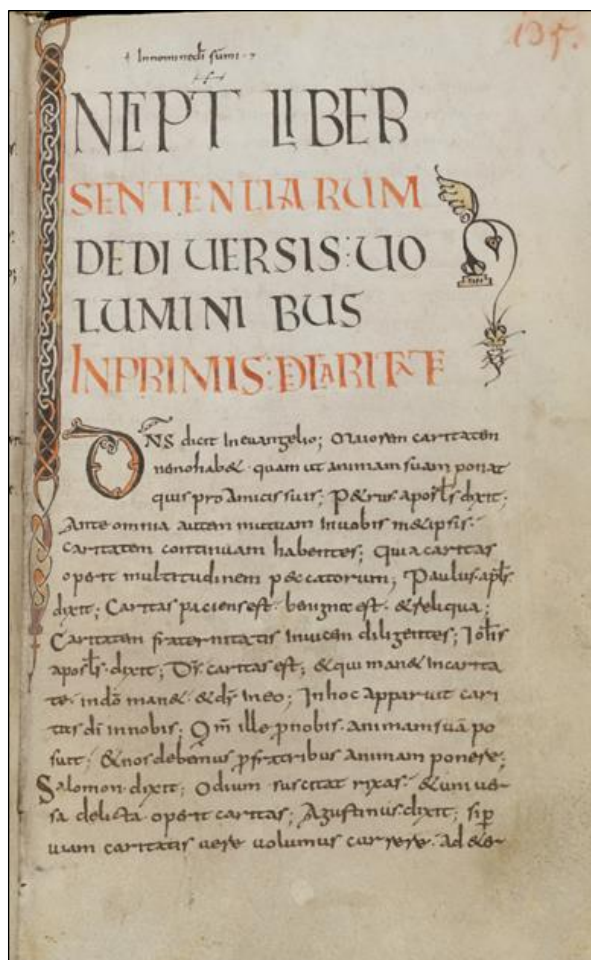 135.
In nomine dī sūmi
INCIPIT LIBER
SENTENTIARUM
DE DIVERSIS: VO
LUMINIBUS
IN PRIMIS: DE CARITATE
DNS dicit in evangelio; Maiorem caritatem
nemo habet quam ut animam suam ponat
quis pro amicis suis; Petrus apostls dixit;
Ante omnia autem mutuam in vobis metipsis
caritatem continuam habentes; Quia caritas
operit multitudinem peccatorum; Paulus apls
dixit; Caritas paciens est. benigna est. & reliqua;
Caritatem fraternitatis invicem diligentes; Iohis
apostls dixit; Ds caritas est; & qui man& in carita
te. in dō man& & ds in eo; In hoc apparuit cari
tas di in nobis; Qm̄ ille p nobis. animam suā po
suit; & nos debemus p fratribus animam ponere;
Salomon dixit; Odium suscitat rixas. & univer
sa delicta operit caritas; Agustinus dixit; si p
viam caritatis vere volumus currere. ad &er